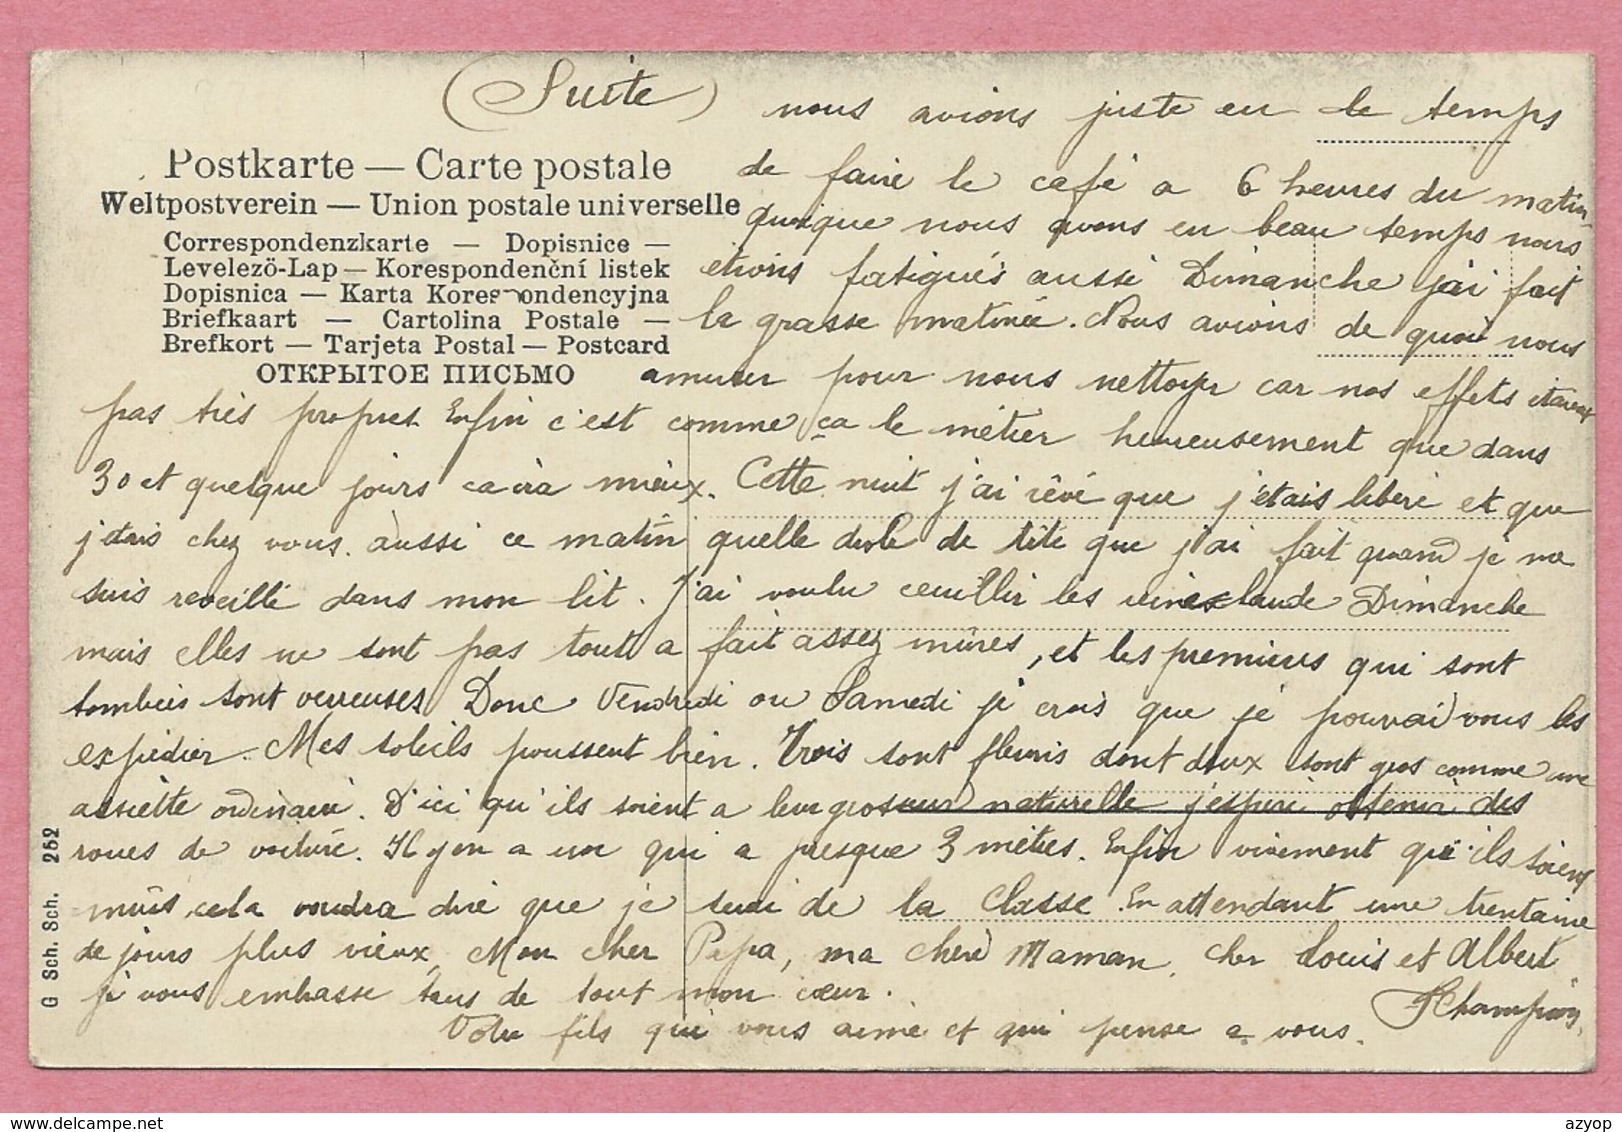 (Suite)
nous avions juste eu le temps
Postkarte — Carte postale
Weltpostverein — Union postale universelle
Correspondenzkarte — Dopisnice —
Levelezö-Lap — Korespondenční listek
Dopisnica — Karta Korespondencyjna
Briefkaart — Cartolina Postale —
Brefkort — Tarjeta Postal — Postcard
ОТКРЫТОЕ ПИСЬМО
de faire le café a 6 heures du matin
quoique nous avons eu beau temps nous
etions fatigués aussi Dimanche j'ai fait
la grasse matinée. Nous avions de quoi nous
amuser pour nous nettoyer car nos effets étaient
pas très propres Enfin c'est comme ça le métier heureusement que dans
30 et quelque jours ca ira mieux. Cette nuit j'ai rêvé que j'étais libéré et que
j'étais chez vous. aussi ce matin quelle drole de tête que j'ai fait quand je me
suis reveillé dans mon lit. J'ai voulu ceuillir les reines claude Dimanche
mais elles ne sont pas tout a fait assez mûres, et les premieres qui sont
tombées sont verreuses Donc Vendredi ou Samedi je crois que je pourrai vous les
expédier. Mes soleils poussent bien. Trois sont fleuris dont deux sont gros comme une
assiette ordinaire. D'ici qu'ils soient a leur grosseur naturelle j'espère obtenir des
roues de voiture. Il y en a un qui a presque 3 mètres. Enfin vivement qu'ils soient
mûrs cela voudra dire que je serai de la Classe. En attendant une trentaine
de jours plus vieux, Mon cher Papa, ma chère Maman, cher Louis et Albert
je vous embrasse tous de tout mon cœur.
Votre fils qui vous aime et qui pense a vous.
Champion
G Sch. Sch. 252
azyop